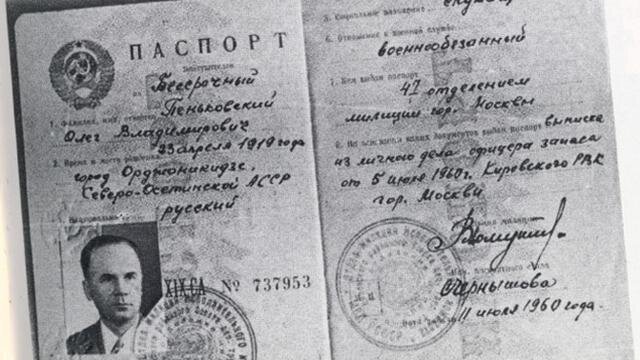 ПАСПОРТ
Бессрочный
Пеньковский
1. Фамилия, имя, отчество
Олег Владимирович
23 апреля 1919 года
2. Время и место рождения
город Орджоникидзе,
Северо-Осетинской АССР
русский
XIX-СА № 737953
5. Социальное положение
служащ
6. Отношение к военной службе
военнообязанный
7. Кем выдан паспорт
47 отделением
милиции гор. Москвы
8. На основании каких документов выдан паспорт выписка
из личного дела офицера запаса
от 5 июля 1960г. Кировского РВК
гор. Москвы
Чернышова
11 июля 1960 года.